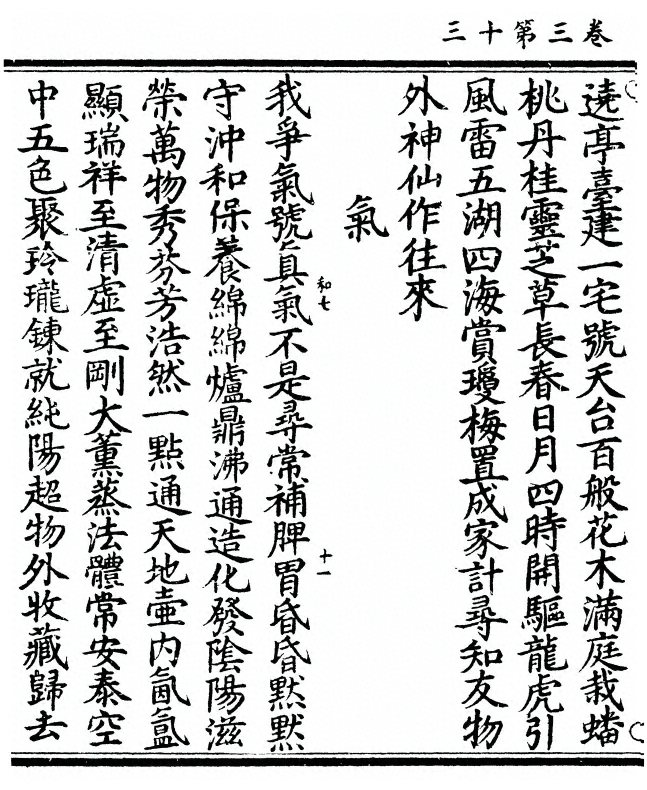 卷三第十三
遶亭臺建一宅號天台百般花木滿庭栽蟠
桃丹桂靈芝草長春日月四時開驅龍虎引
風雷五湖四海賞瓊梅置成家計尋知友物
外神仙作往來
氣
我爭氣號真氣不是尋常補脾胃昏昏默默
和七
十一
守沖和保養綿綿爐鼎沸通造化發陰陽滋
榮萬物秀芬芳浩然一點通天地壷内氤氳
顯瑞祥至清虛至剛大薰蒸法體常安泰空
中五色聚玲瓏鍊就純陽超物外收藏歸去